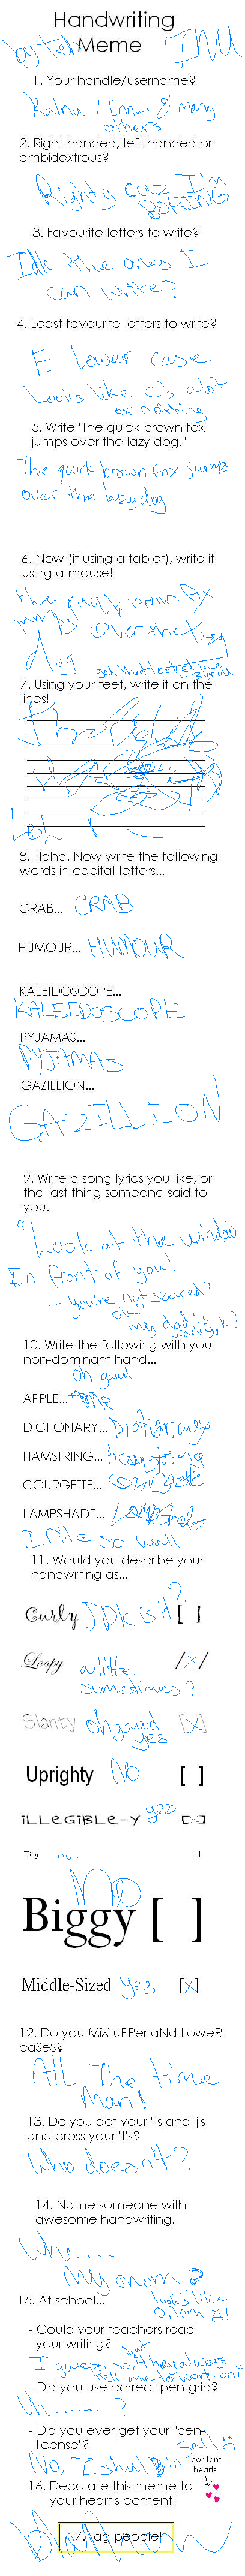 Handwriting
Meme
by teh INU
1. Your handle/username?
Kalnu / Innuo & many
others
2. Right-handed, left-handed or
ambidextrous?
Righty cuz I'm
BORING
3. Favourite letters to write?
Idk the ones I
can write?
4. Least favourite letters to write?
E lower case
Looks like c's alot
or nothing
5. Write "The quick brown fox
jumps over the lazy dog."
The quick brown fox jumps
over the lazy dog
6. Now (if using a tablet), write it
using a mouse!
the quick brown fox
jumps over the lazy
dog
god that looked like
a 3 yr old
7. Using your feet, write it on the
lines!
Loh !
8. Haha. Now write the following
words in capital letters...
CRAB... CRAB
HUMOUR... HUMOUR
KALEIDOSCOPE...
KALEIDOSCOPE
PYJAMAS...
PYJAMAS
GAZILLION...
GAZILLION
9. Write a song lyrics you like, or
the last thing someone said to
you.
"Look at the window
In front of you!
... you're not scared?
ok..
my dad is
wacky, k?
10. Write the following with your
non-dominant hand...
oh gawd
APPLE...
DICTIONARY... Dictionary
HAMSTRING... hamstring
COURGETTE... courgette
LAMPSHADE... Lampshade
I rite so well
11. Would you describe your
handwriting as...
Curly IDk is it? [ ]
Loopy a little [x]
sometimes?
Slanty oh gawd [x]
yes
Uprighty No [ ]
iLLeGiBLe-y yes [x]
Tiny no.... [ ]
No
Biggy [ ]
Middle-Sized yes [x]
12. Do you MiX uPPer aNd LoweR
caSeS?
All The time
Man!
13. Do you dot your 'i's and 'j's
and cross your 't's?
Who doesn't?
14. Name someone with
awesome handwriting.
Uhh.....
My mom?
15. At school...
looks like
onom
- Could your teachers read
your writing?
I guess so, but they always
tell me to work on it
- Did you use correct pen-grip?
Uh ......?
- Did you ever get your "pen-
license"?
No, I shul b in jail
content
hearts
16. Decorate this meme to
your heart's content!
17. Tag people!